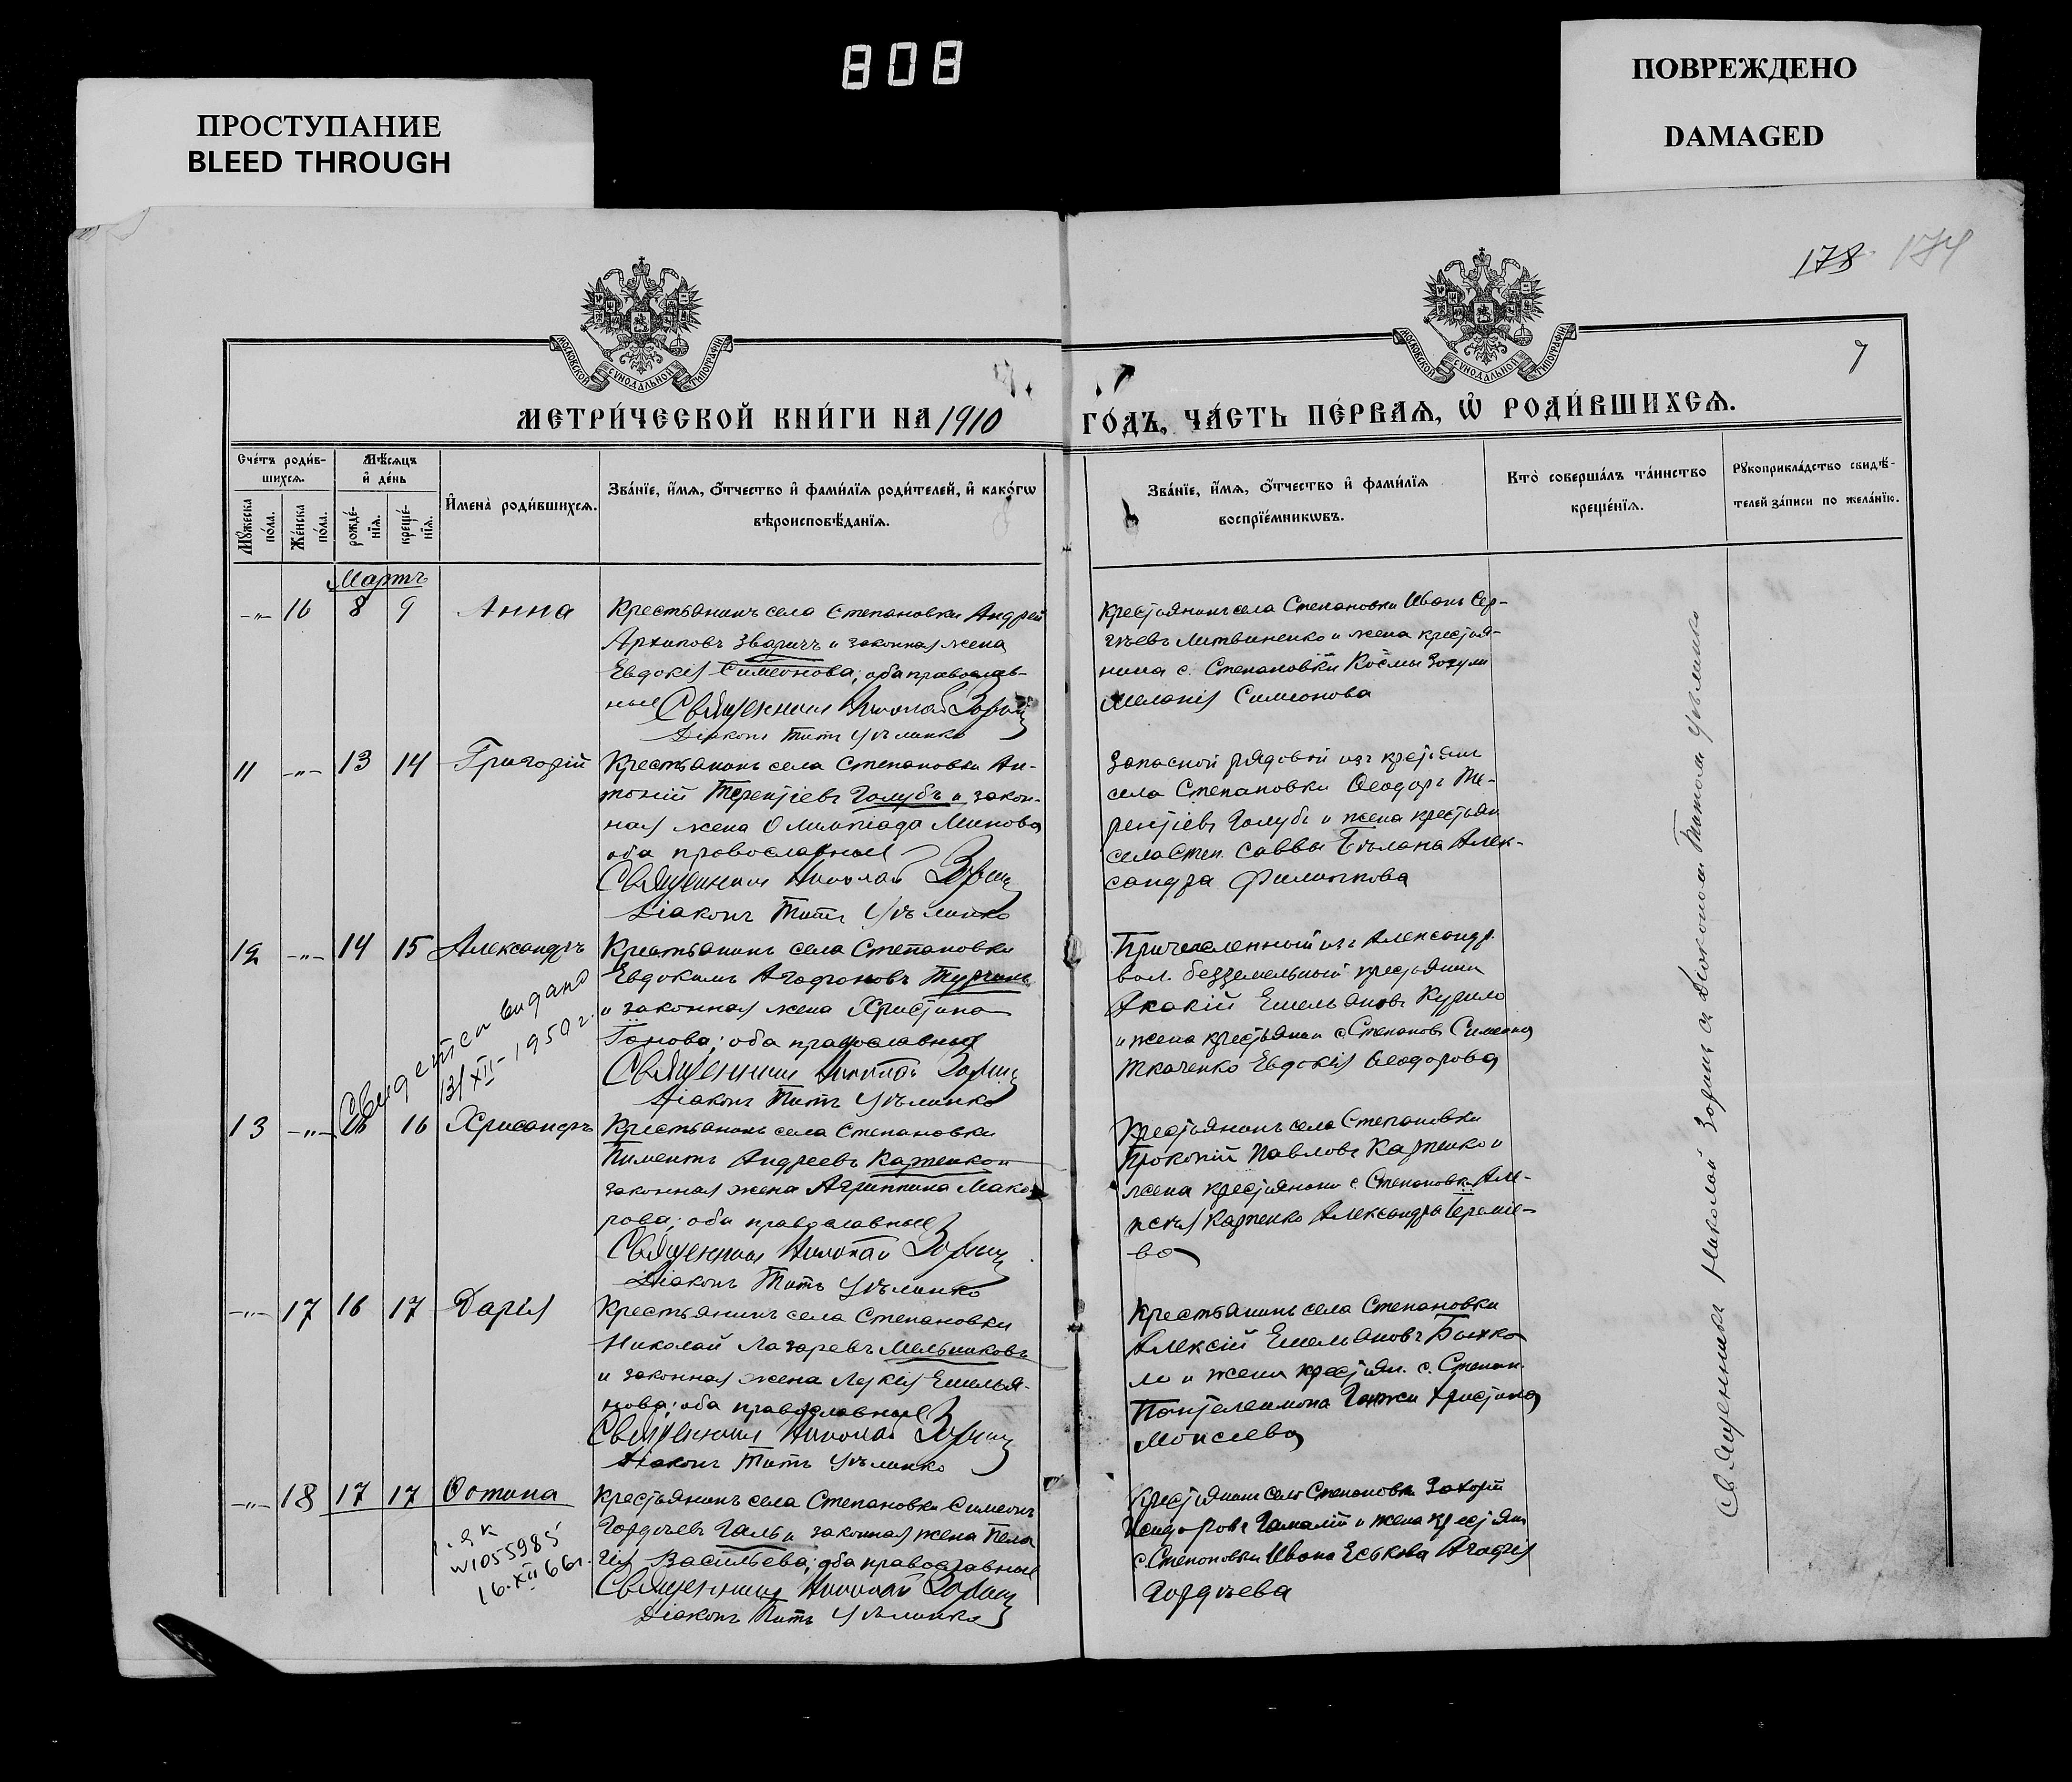 808
ПРОСТУПАНИЕ
BLEED THROUGH
ПОВРЕЖДЕНО
DAMAGED
178 174
7
МОСКОВСКОЙ СУНОДАЛЬНОЙ ТИПОГРАФІИ
МОСКОВСКОЙ СУНОДАЛЬНОЙ ТИПОГРАФІИ
МЕТРИ́ЧЕСКОЙ КНИ́ГИ НА 1910
ГО́ДЪ, ЧА́СТЬ ПЕ́РВАѦ, Ѡ҆ РОДИ́ВШИХСѦ.
Сче́тъ роди́в-
шихсѧ.
Мꙋ́жеска по́ла.
Же́нска по́ла.
Мѣ́сѧцъ
и҆ де́нь
рожде́-
нїѧ.
креще́-
нїѧ.
И҆мена̀ роди́вшихсѧ.
Зва́нїе, и҆́мѧ, ѻ҆́тчество и҆ фами́лїѧ роди́телей, и҆ како́гѡ
вѣроисповѣ́данїѧ.
Зва́нїе, и҆́мѧ, ѻ҆́тчество и҆ фами́лїѧ
воспрїе́мникѡвъ.
Кто̀ соверша́лъ та́инство
креще́нїѧ.
Рꙋкоприкла́дство свидѣ́-
телей за́писи по жела́нїю.
Мартъ
-"- 16 8 9 Анна
Крестьянинъ села Степановки Андрей
Архиповъ Зваричъ и законная жена
Евдокія Симеонова; оба православ-
ные Священникъ Николай Зоринъ
Діаконъ Титъ Усъленко
Крестьянинъ села Степановки Иванъ Сер-
гѣевъ Литвиненко и жена крестья-
нина с. Степановки Космы Зозули
Меланія Симеонова
11 -"- 13 14 Григорій
Крестьянинъ села Степановки Ан-
тоній Терентіевъ Голубъ и закон-
ная жена Олимпіада Минова
оба православные
Священникъ Николай Зоринъ
Діаконъ Титъ
Запасной рядовой изъ крестьянъ
села Степановки Ѳеодоръ Те-
рентіевъ Голубъ и жена крестьян
села Степ. Саввы Бѣлана Алек-
сандра Филиппова
12 -"- 14 15 Александръ
Крестьянинъ села Степановки
Евдокимъ Агафоновъ Турчинъ
и законная жена Христина
оба православные
Священникъ Николай Зоринъ
Діаконъ Титъ
Причисленный изъ Александр.
вол. безземельный крестьянин
Акакій Емельяновъ Курило
и жена крестьянин с. Степанов. Симеона
Ткаченко Евдокія Ѳеодорова
Свидетел выдано
13/XII-1950 г.
13 -"- 16 Хрисанфъ
Крестьянинъ села Степановки
Пименъ Андреевъ Карпенко и
законная жена Агриппина Мака-
рова; оба православные
Священникъ Николай Зоринъ
Діаконъ Титъ
Крестьянинъ села Степановки
Прокопій Павловъ Карпенко и
жена крестьянина с. Степановки Але-
ксѣя Карпенко Александра Іереміе-
ва
-"- 17 16 17 Дарія
Крестьянинъ села Степановки
Николай Лазаревъ Мельниковъ
и законная жена Лукія Емелья-
нова; оба православные
Священникъ Николай Зоринъ
Діаконъ Титъ
Крестьянинъ села Степановки
Алексій Емельяновъ Бычко
ло и жена крестьян. с. Степан.
Пантелеимона Ганжи Христина
Моисеева
-"- 18 17 17 Фотина
Крестьянинъ села Степановки Симеонъ
Гордѣевъ Галь и законная жена Пела
гія Васильева; оба православные
Священникъ Николай Зоринъ
Діаконъ Титъ
Крестьянинъ села Степановки Захарій
Исидоровъ Гамалій и жена крестьян
с. Степановки Ивана Еськова Агафія
Гордѣева
1055985
16.XII 66г.
Священникъ Николай Зоринъ съ Діакономъ Титомъ